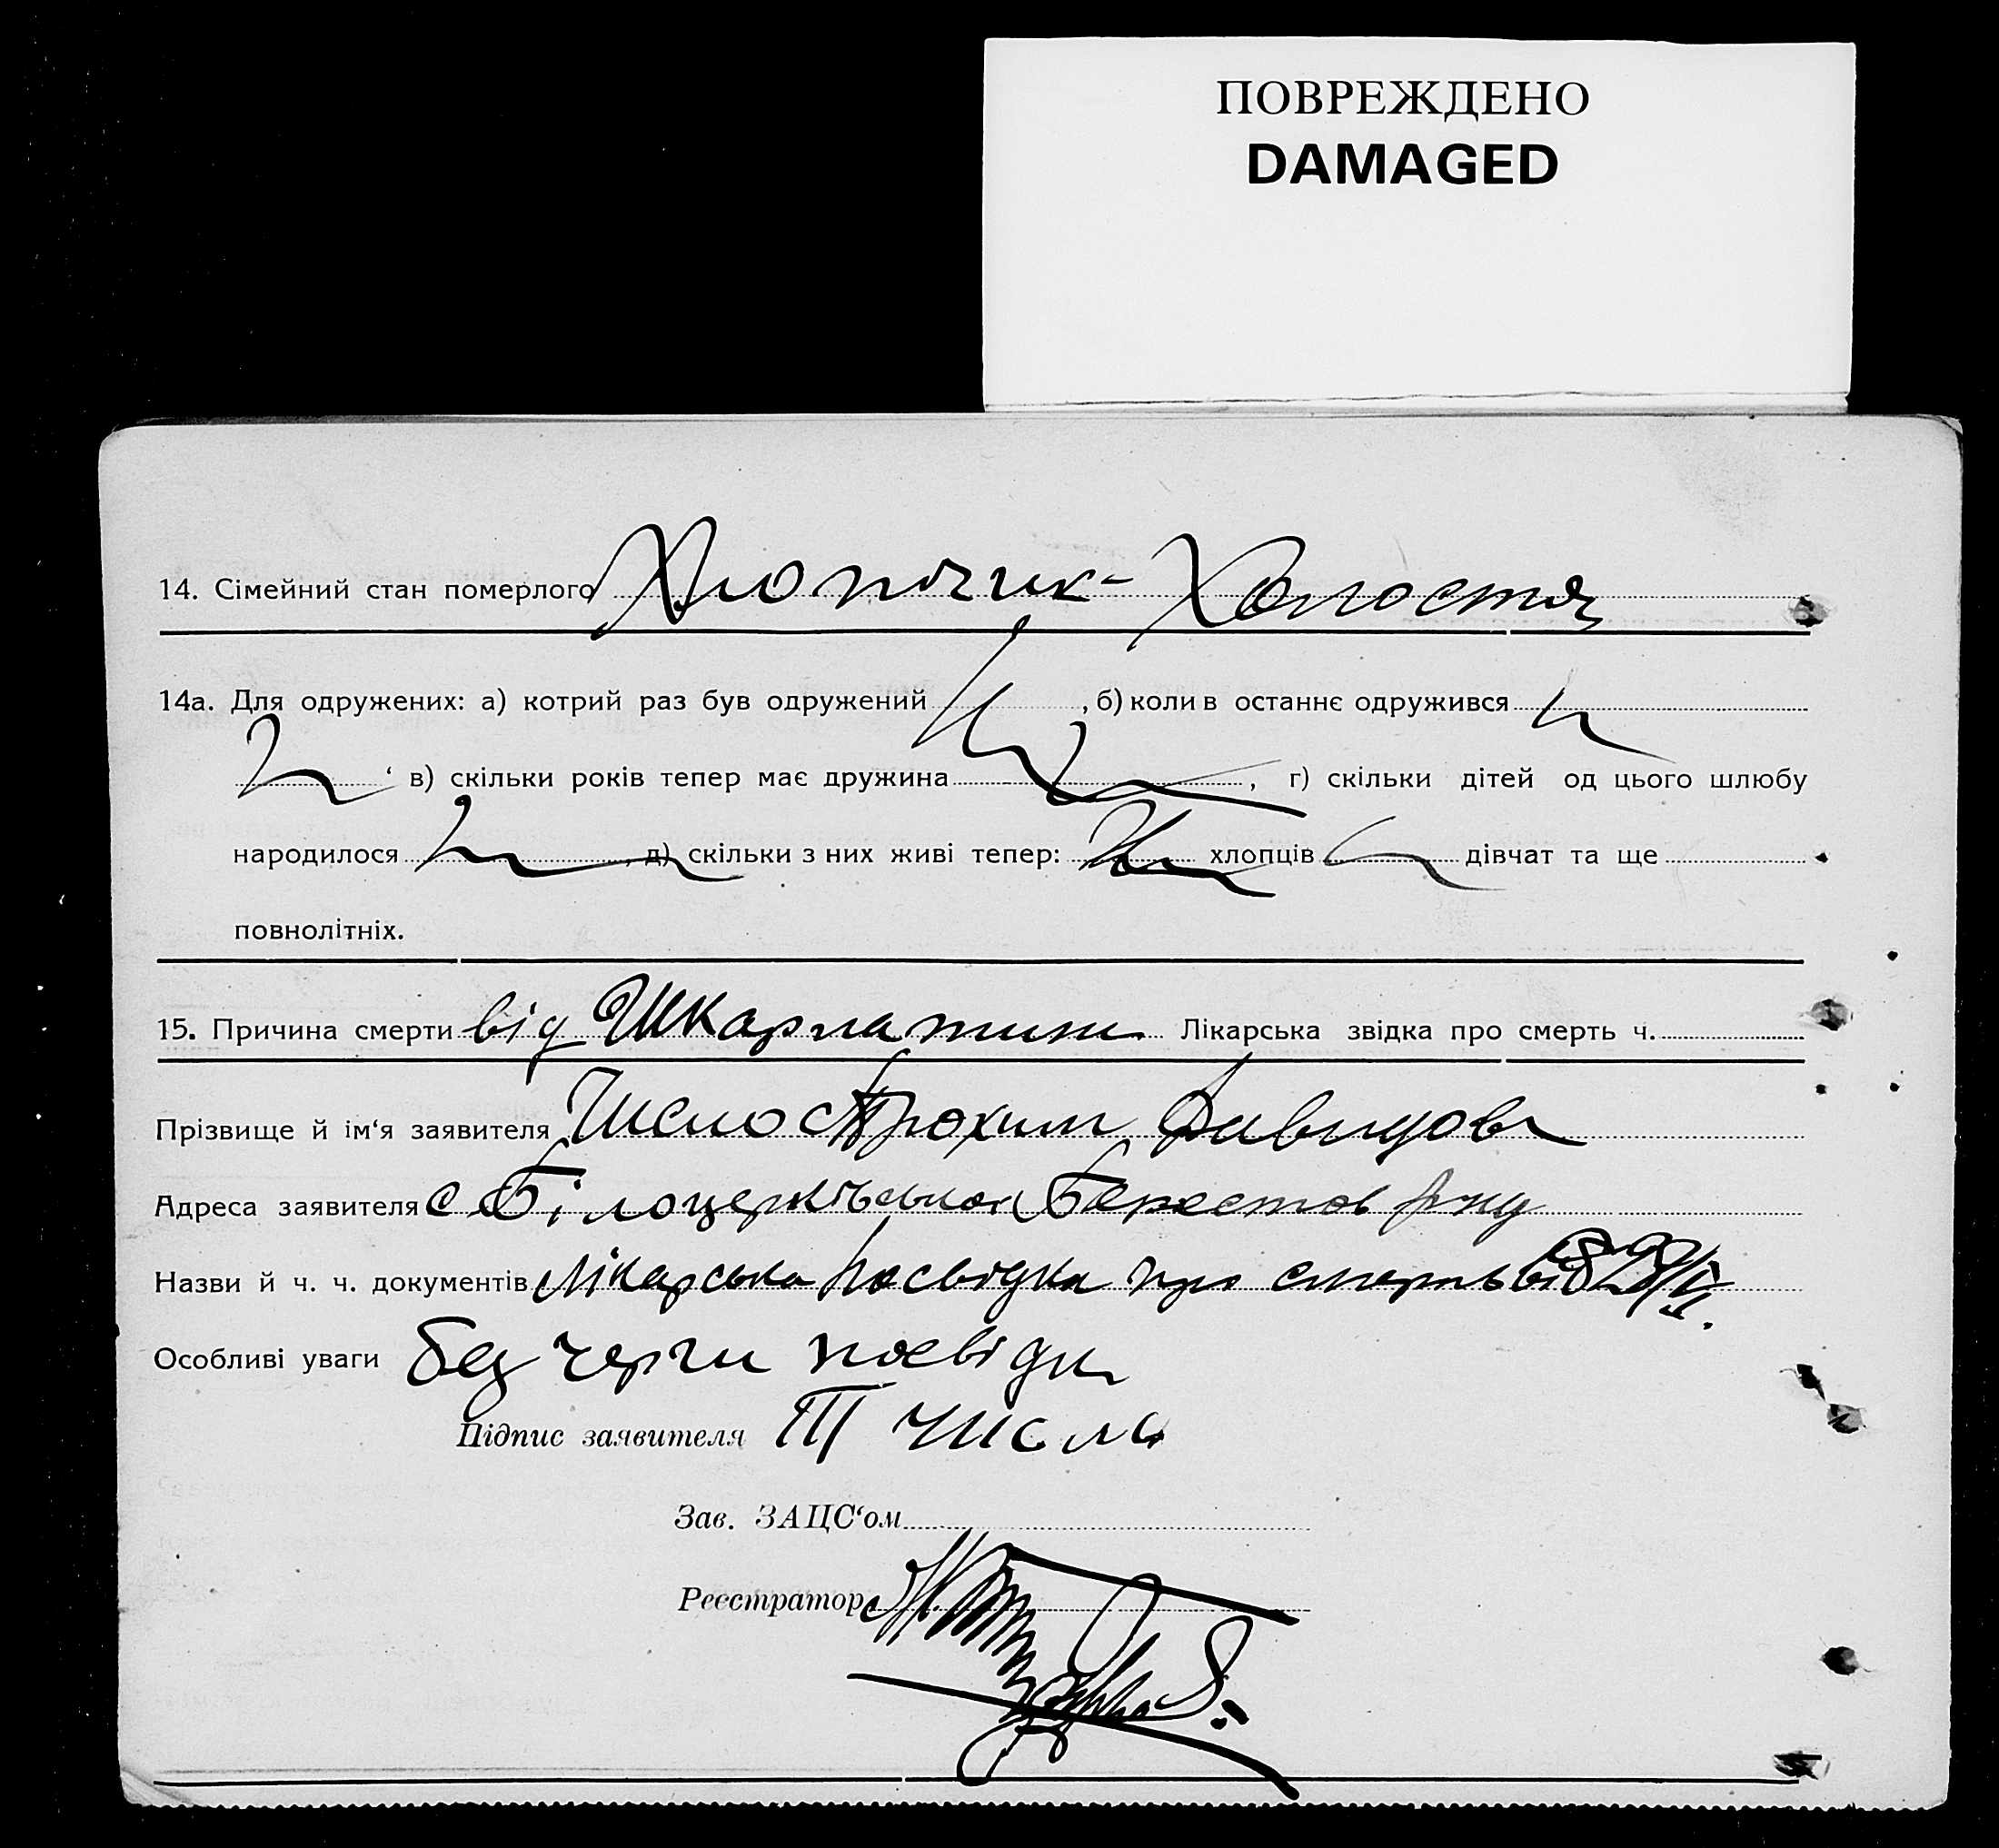 ПОВРЕЖДЕНО
DAMAGED
14. Сімейний стан померлого Хлопчик - Холостя
14а. Для одружених: а) котрий раз був одружений , б) коли в останнє одружився
в) скільки років тепер має дружина , г) скільки дітей од цього шлюбу
народилося , д) скільки з них живі тепер: хлопців дівчат та ще
повнолітніх.
15. Причина смерти від Шкарлатини Лікарська звідка про смерть ч.
Прізвище й ім‘я заявителя Трохим Давидов
Адреса заявителя с Білоцерківська Берестов рну
Назви й ч. ч. документів Лікарська посвідка про смерть від
Особливі уваги без черги посвідки
Підпис заявителя Т Числа
Зав. ЗАЦС‘ом
Реєстратор